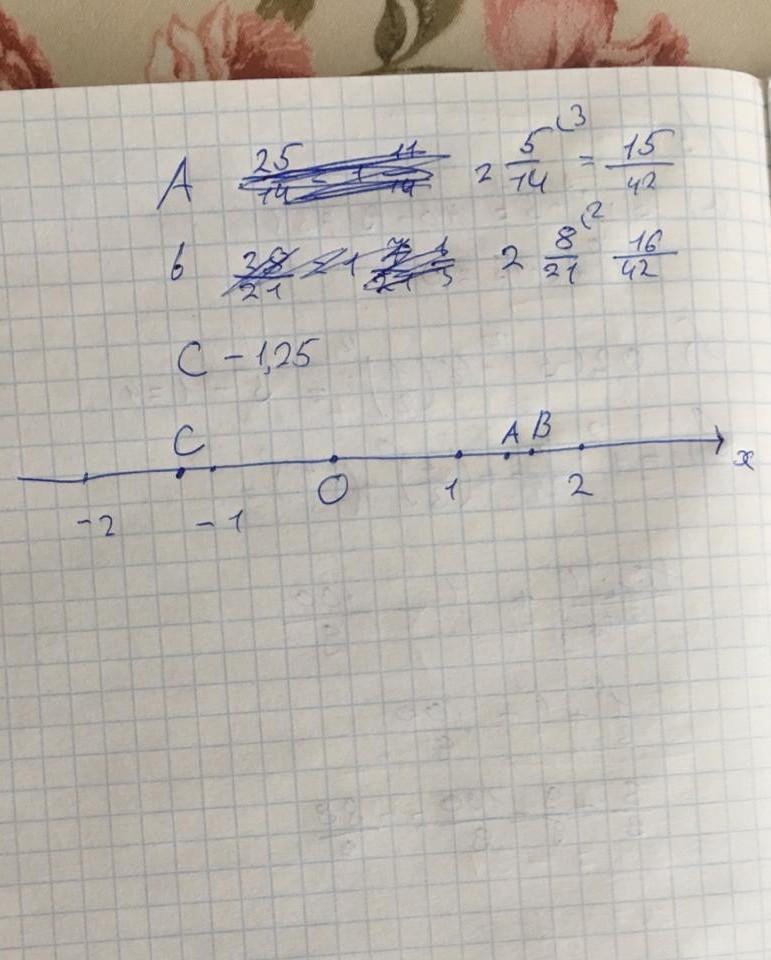 A 25/14 = 1 11/14 2 5/14 (3 = 15/42
б 28/21 = 1 2 8/21 (2 16/42
C - 1,25
C A B
x
-2 -1 0 1 2